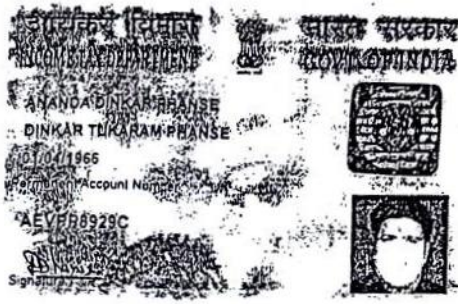 आयकर विभाग
भारत सरकार
INCOME TAX DEPARTMENT
GOVT. OF INDIA
ANANDA DINKAR PHANSE
DINKAR TUKARAM PHANSE
01/04/1966
Permanent Account Number
Signature